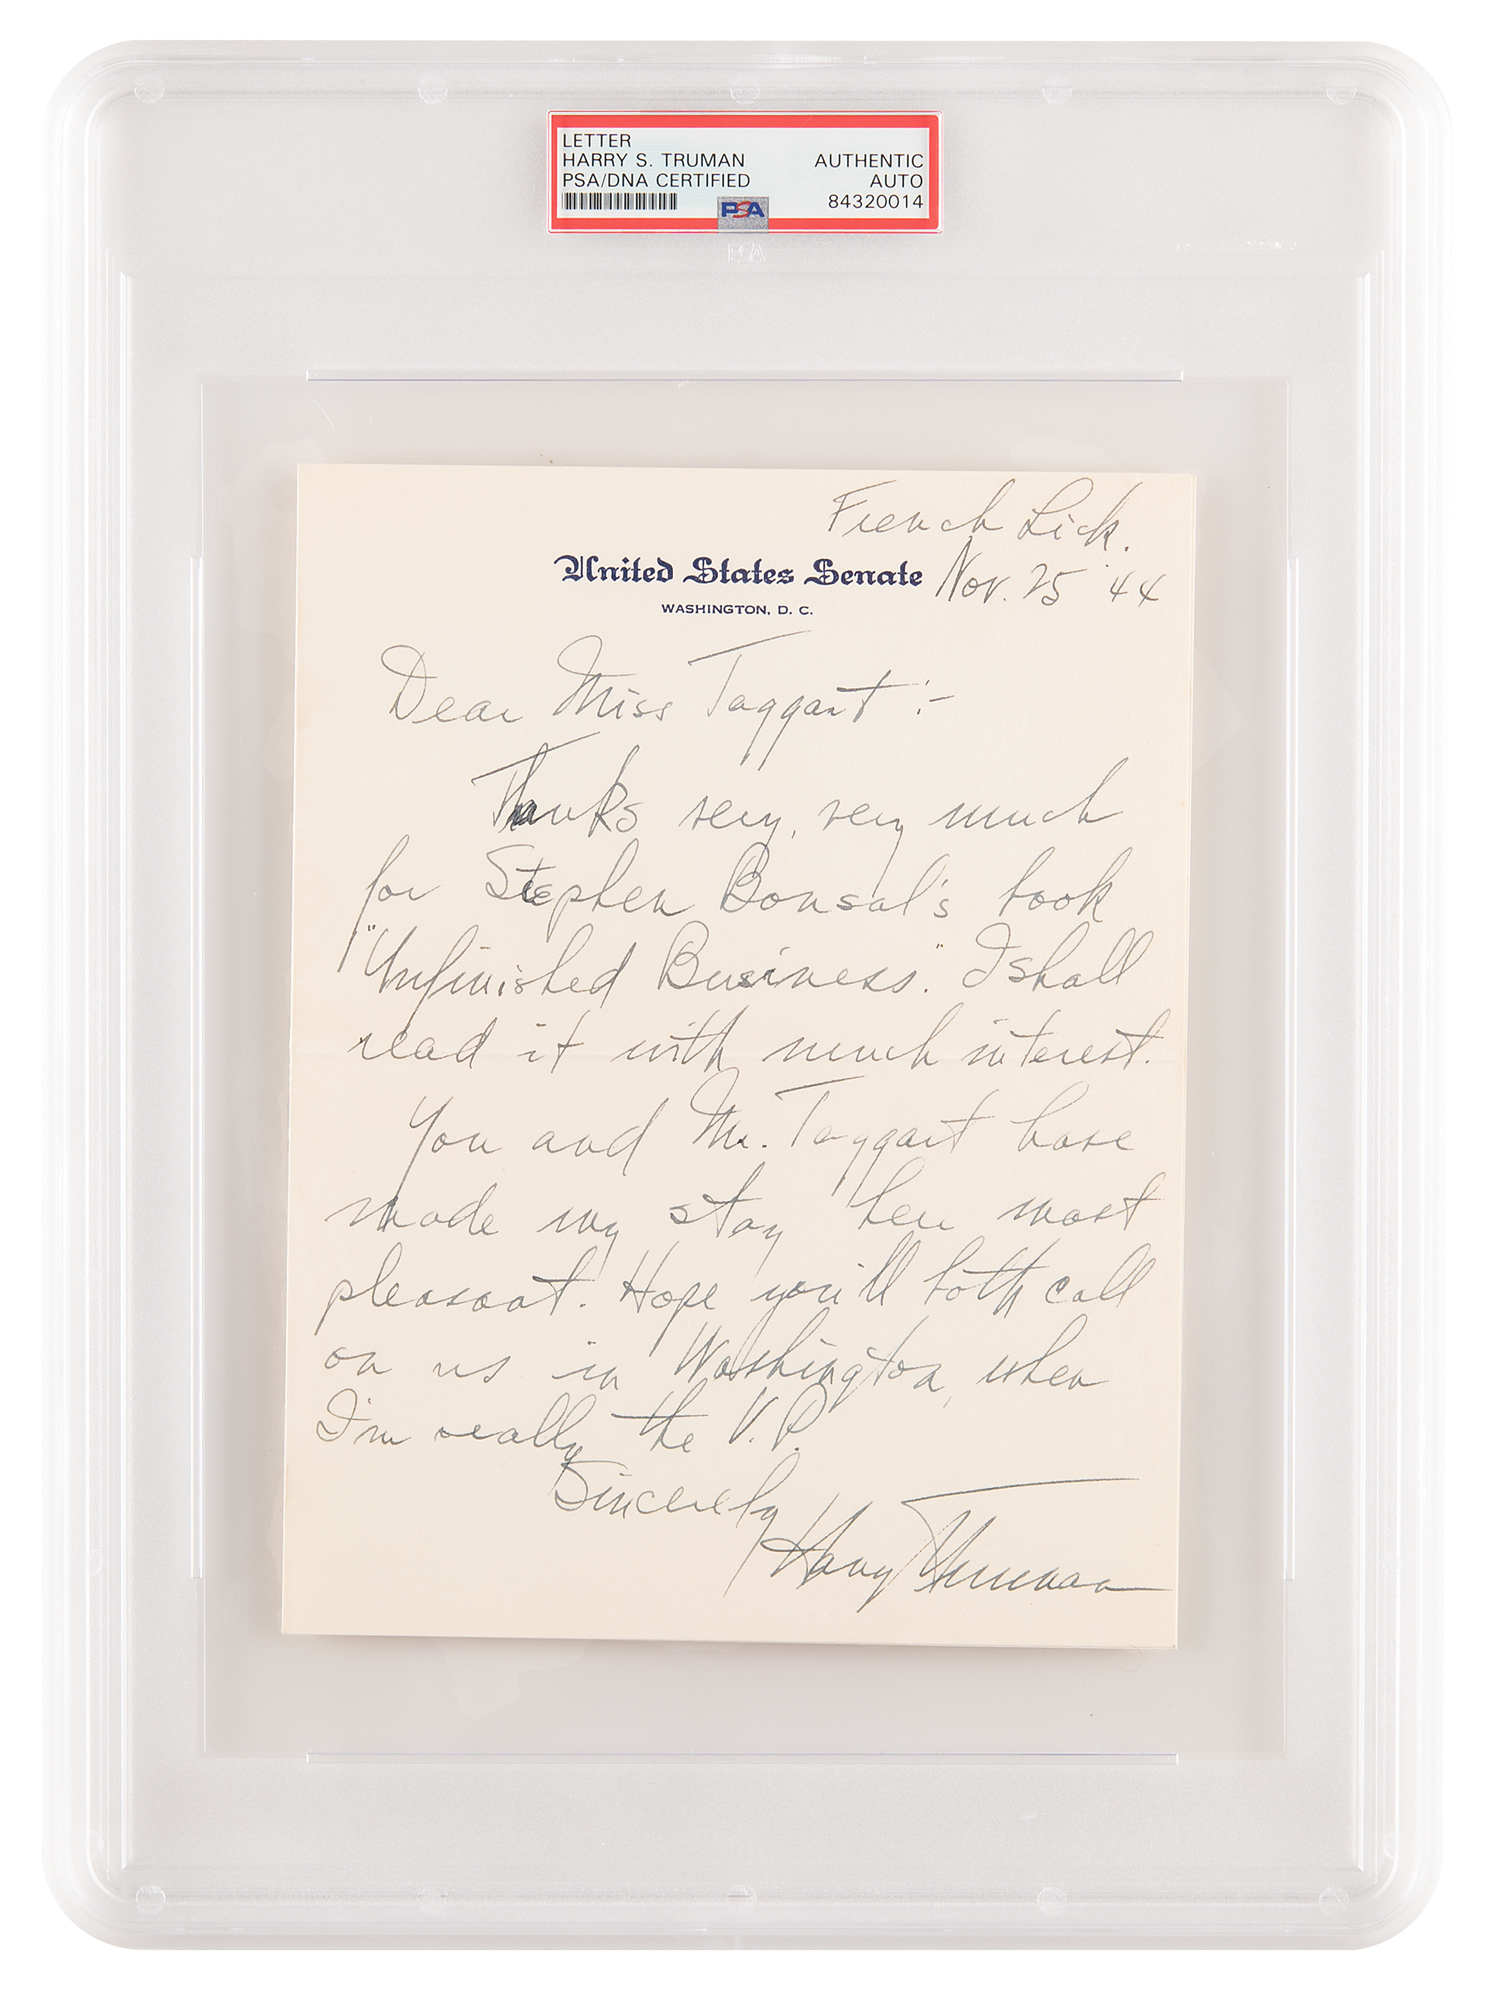 LETTER
HARRY S. TRUMAN
PSA/DNA CERTIFIED
AUTHENTIC
AUTO
84320014
PSA
PSA
French Lick.
United States Senate
Nov. 25 '44
WASHINGTON, D. C.
Dear Miss Taggart :-
Thanks very, very much
for Stephen Bonsal's book
"Unfinished Business." I shall
read it with much interest.
You and Mr. Taggart have
made my stay here most
pleasant. Hope you'll both call
on us in Washington, when
I'm really the V.P.
Sincerely
Harry S Truman